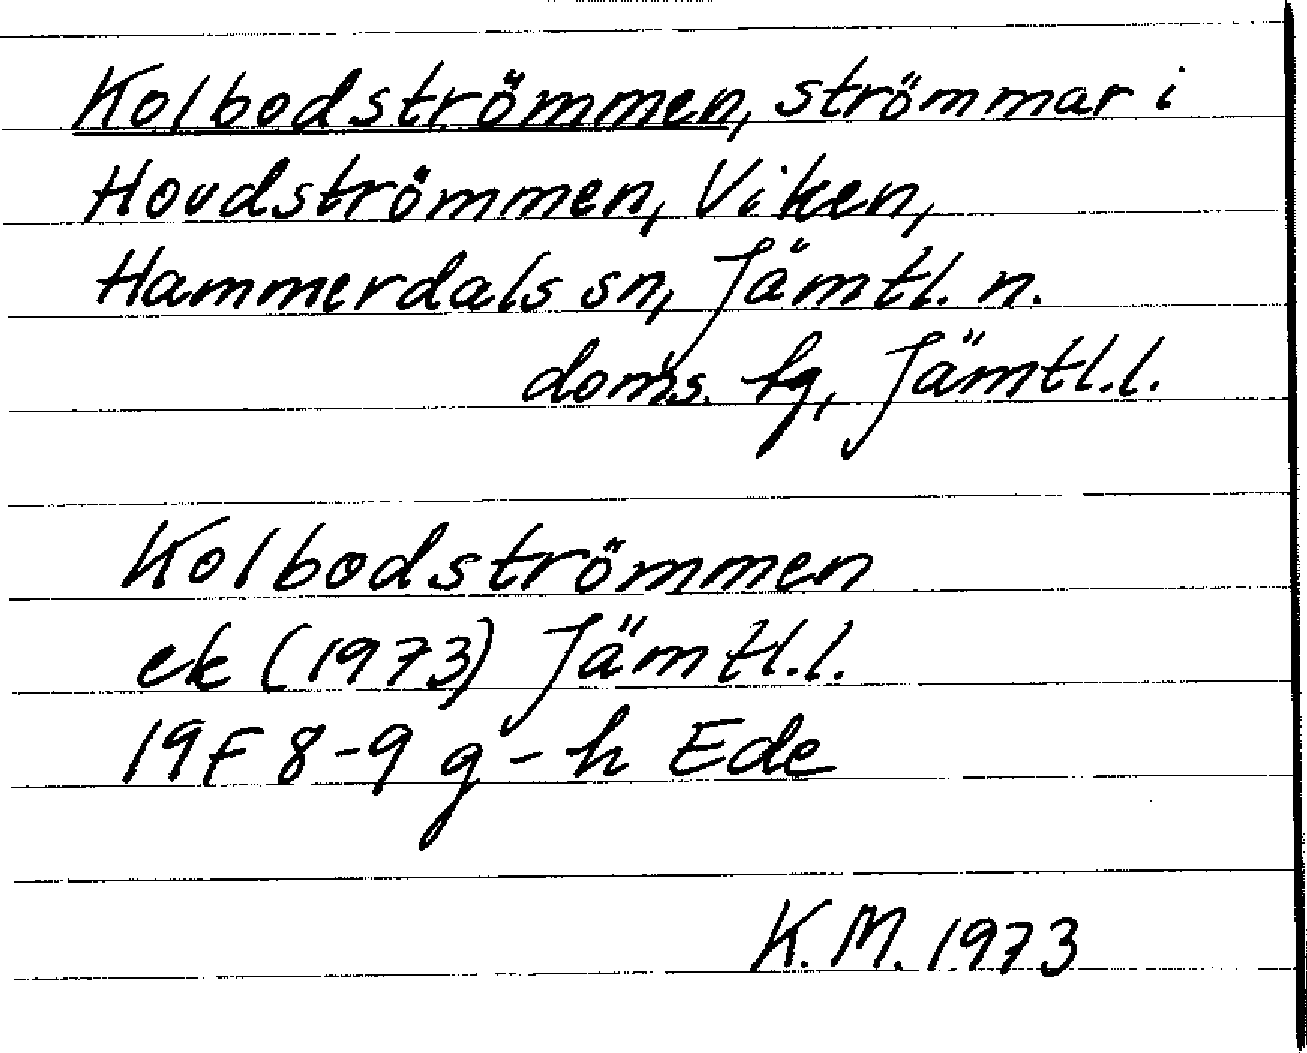 Kolbodströmmen, strömmar i
Hovdströmmen, Viken,
Hammerdals sn, Jämtl. n.
doms. tg, Jämtl.l.
Kolbodströmmen
ek (1973) Jämtl.l.
19F 8-9 g-h Ede
K.M. 1973